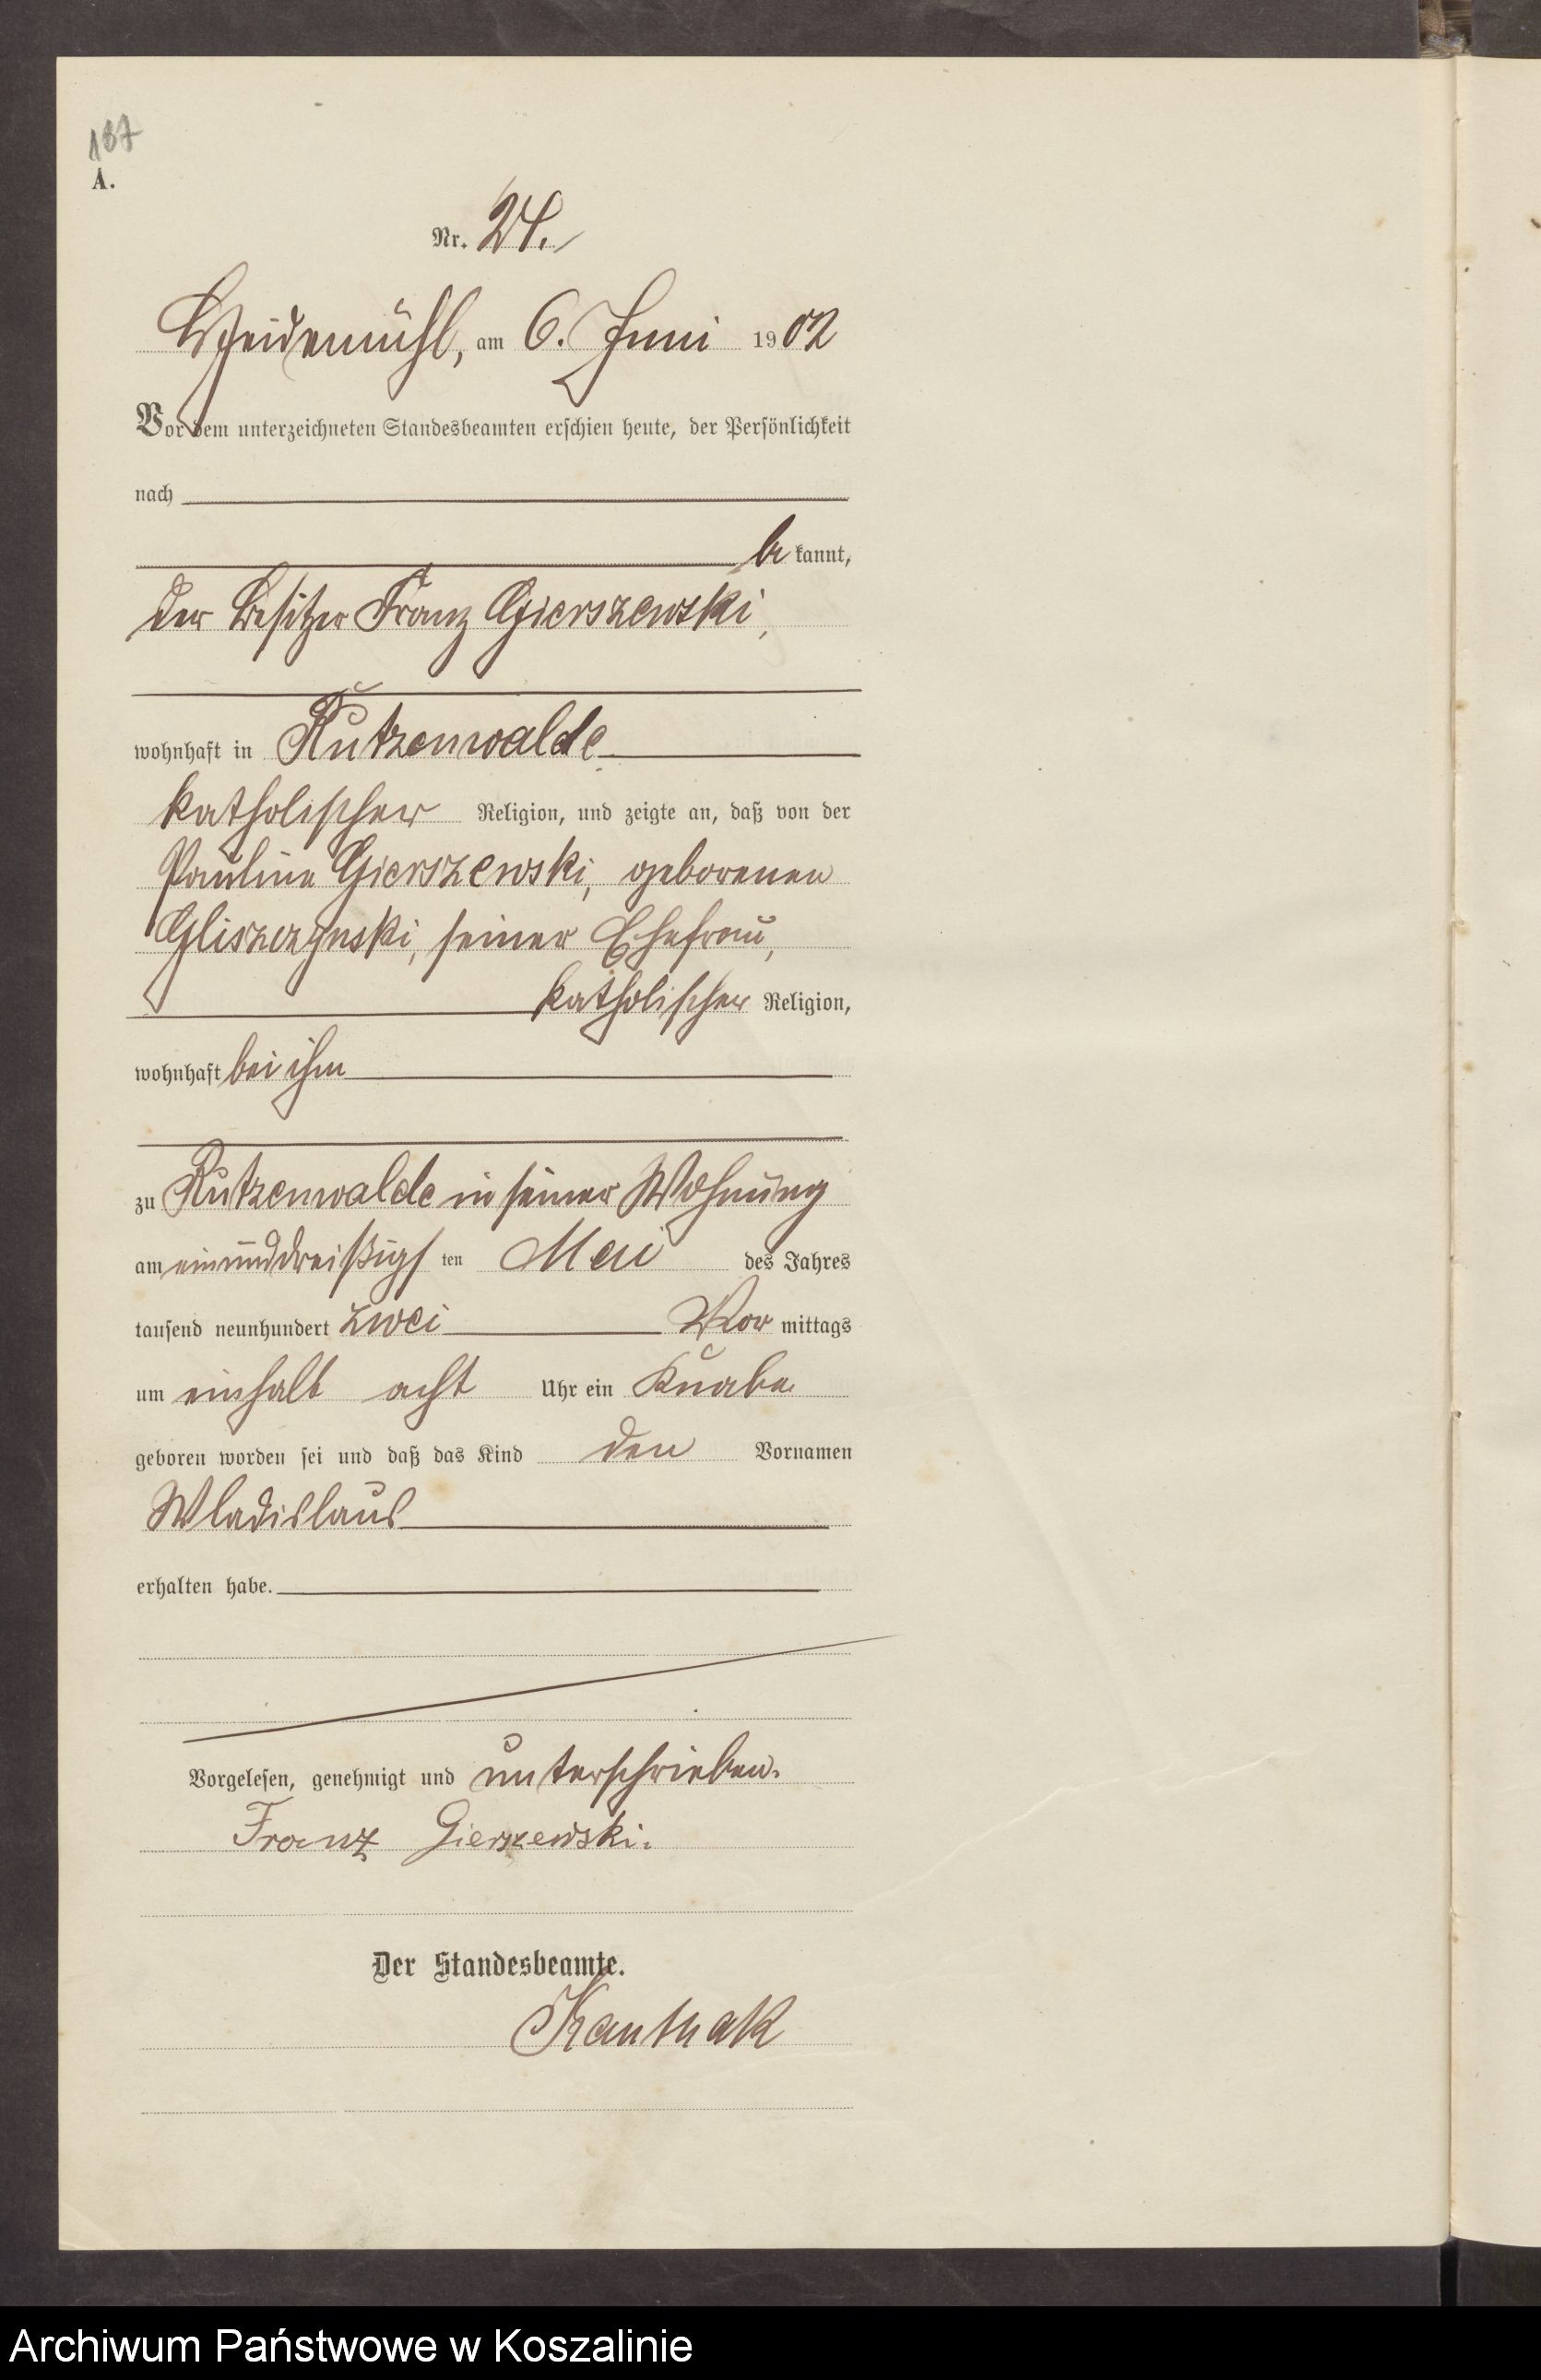 187
A.
Nr. 24.
Heidemühl, am 6. Juni 1902
Vor dem unterzeichneten Standesbeamten erschien heute, der Persönlichkeit
nach
be kannt,
der Besitzer Franz Gierszewski,
wohnhaft in Kutzenwalde
katholischer Religion, und zeigte an, daß von der
Pauline Gierszewski, geborenen
Gliszczynski, seiner Ehefrau,
katholischer Religion,
wohnhaft bei ihm
zu Rutzenwalde in seiner Wohnung
am einunddreißigs ten Mai des Jahres
tausend neunhundert zwei Vor mittags
um einhalb acht Uhr ein Knabe
geboren worden sei und daß das Kind den Vornamen
Wladislaus
erhalten habe.
Vorgelesen, genehmigt und unterschrieben.
Franz Gierszewski.
Der Standesbeamte.
Archiwum Państwowe w Koszalinie